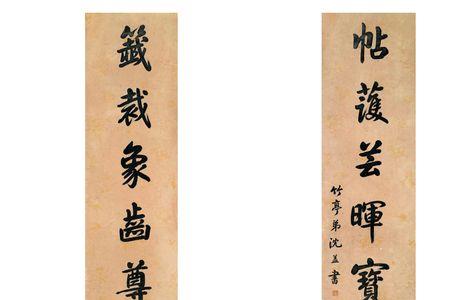 帖護芸暉寶
竹亭弟沈書
籤裁象齒尊